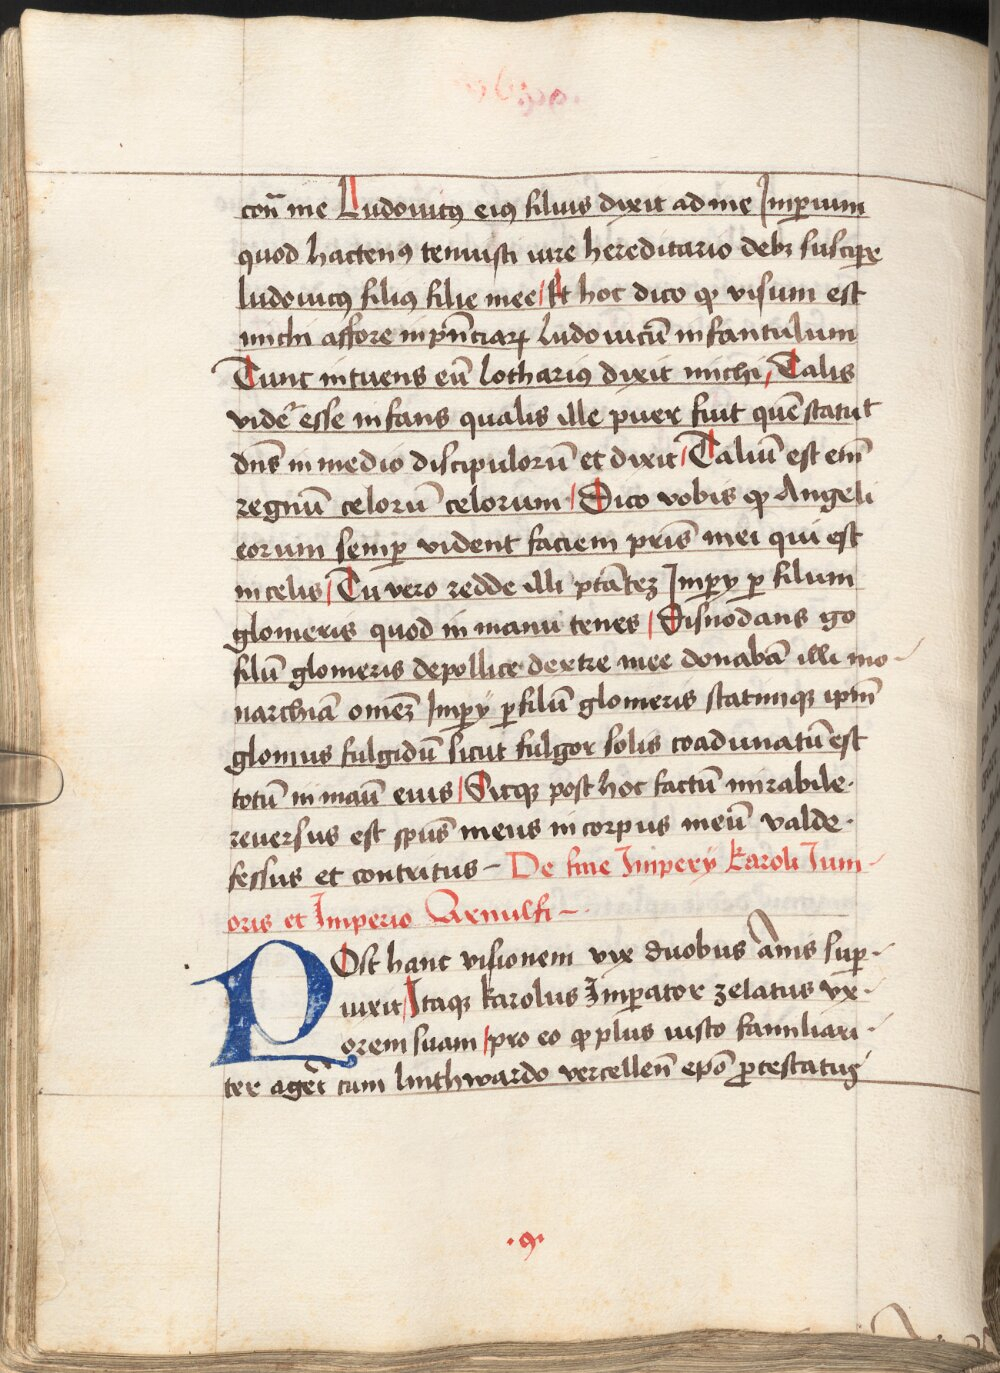 con̄ me Ludouicꝰ eiꝰ filius dixit ad me Imꝑium
quod hactenꝰ tenuisti iure hereditario debꝫ susciꝑe
ludouicꝰ filiꝰ filie mee / Et hoc dico ꝙ visum est
michi affore in pn̄ciaꝝ Ludouicū infantulum
Tunc intuens eū lothariꝰ dixit michi / Talis
videt̾ esse infans qualis ille puer fuit quē statuit
dn̄s in medio discipulorū et dixit / Taliū est em̄
regnū celorū celorum / Dico vobis ꝙ Angeli
eorum semꝑ vident faciem pr̄is mei qui est
in celis / Tu vero redde illi ptāteꝫ Imꝑy ꝑ filum
glomeris quod in manu tenes / Disnodans go
filū glomeris de pollice dextre mee donabā illi mo-
narchiā om̄eꝫ Imꝑÿ ꝑ filū glomeris statimqꝫ ip̄m
glomus fulgidū sicut fulgor solis coadunatū est
totū in manū eius / Sicqꝫ post hoc factū mirabile
reuersus est sp̄us meus in corpus meū valde
fessus et contritus - De fine Imperÿ Karoli Iuni-
oris et Imperio Arnulfi -
POst hanc visionem vix duobus Annis suꝑ-
uixit / Itaqꝫ karolus Imꝑator zelatus vx-
orem suam / pro eo ꝙ plus iusto familiari-
ter ageret cum linthwardo vercellen̄ ep̄o ꝓtestatus
.9.